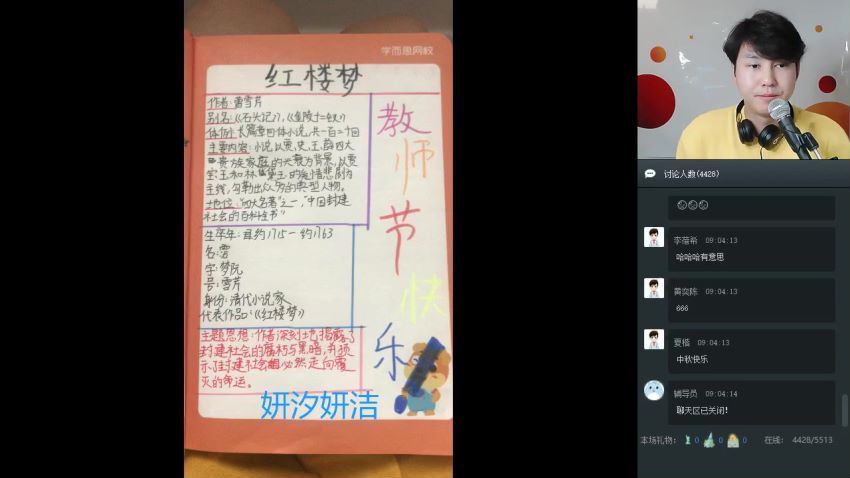 学而思网校
红楼梦
作者:曹雪芹
别名:《石头记》,《金陵十二钗》
体例:长篇章回体小说,共一百二十回
主要内容:小说以贾、史、王、薛四大
贵族家庭的兴衰为背景,以贾
宝玉和林黛玉的爱情悲剧为
主线,勾勒出众多的典型人物。
地位:"四大名著"之一,"中国封建
社会的百科全书"
生卒年:且约1715—约1763
名:霑
字:梦阮
号:雪芹
身份:清代小说家
代表作品:《红楼梦》
主题思想:作者深刻地揭露了
封建社会的腐朽与黑暗,并预
示了封建社会必然走向覆
灭的命运。
教
师
节
快
乐
妍汐妍洁
讨论人数(4428)
李蕴希 09:04:13
哈哈哈有意思
黄奕陈 09:04:13
666
夏楷 09:04:13
中秋快乐
辅导员 09:04:14
聊天区已关闭!
本场礼物: 0 0 0 在线: 4428/5513